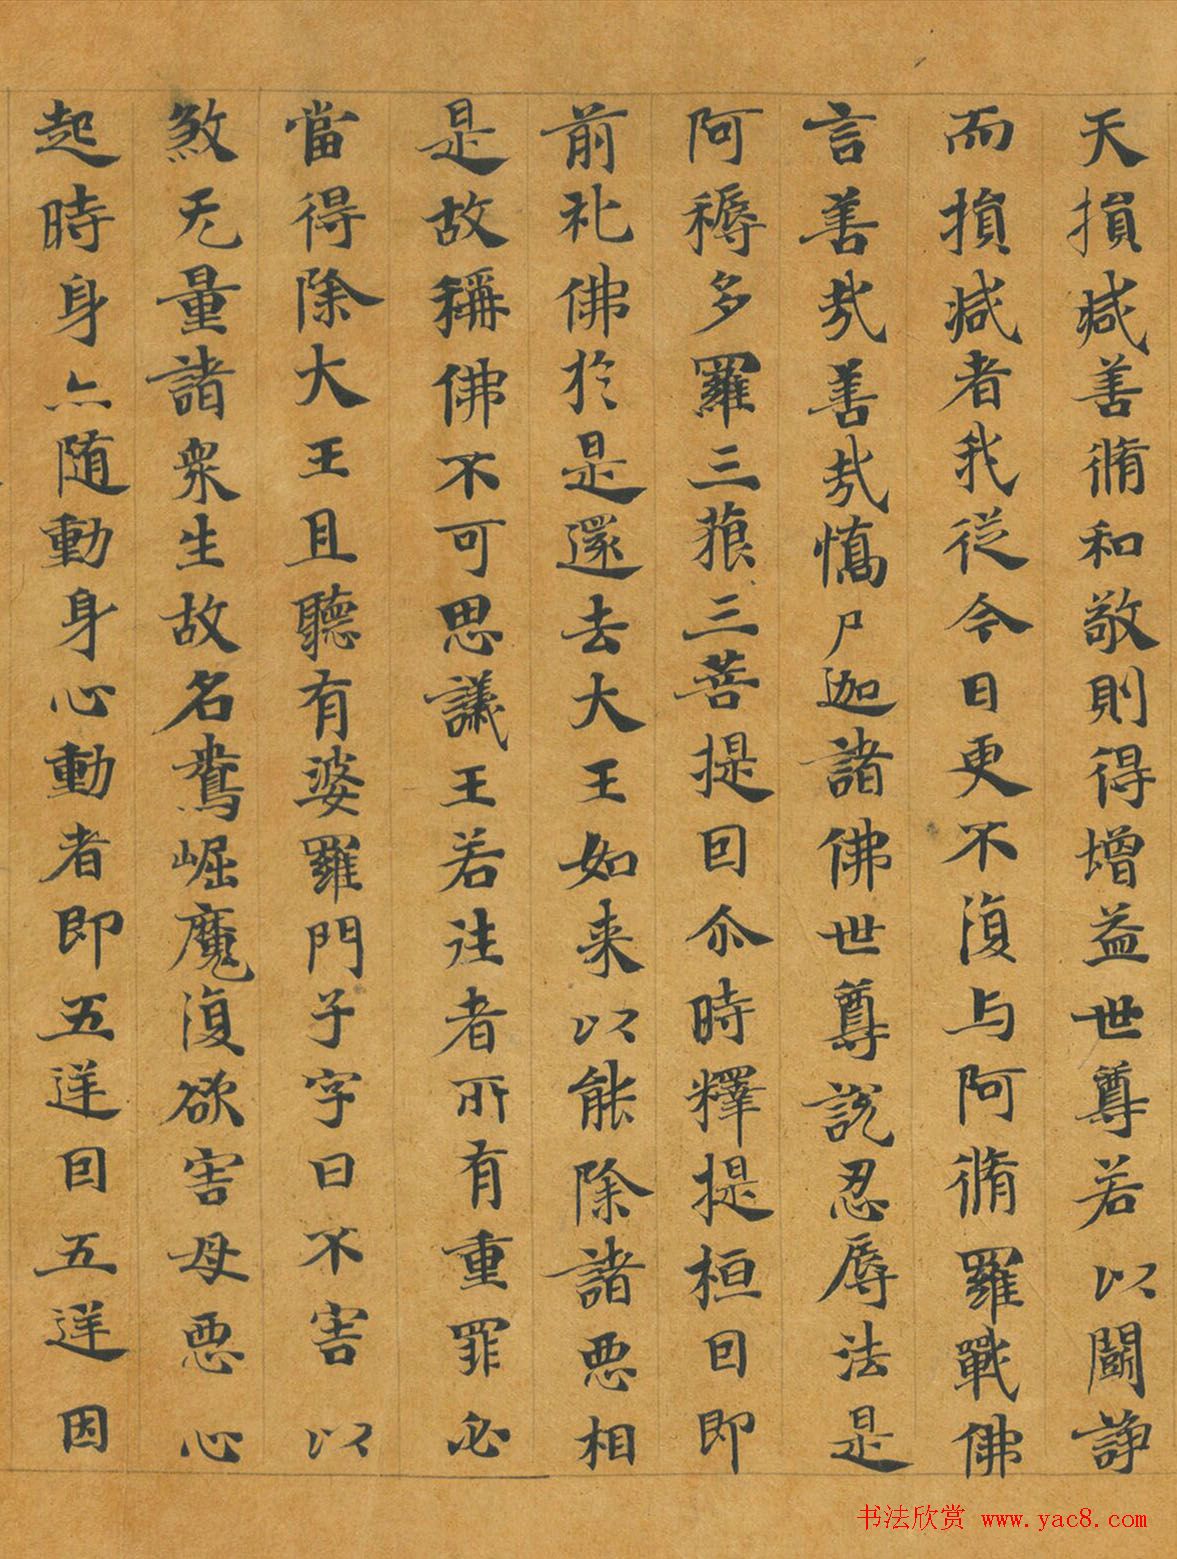 天損減善脩和敬則得增益世尊若以鬪諍
而損減者我從今日更不復与阿脩羅戰佛
言善㢤善㢤憍尸迦諸佛世尊說忍辱法是
阿耨多羅三藐三菩提囙尒時釋提桓囙即
前礼佛於是還去大王如来以能除諸悪相
是故稱佛不可思議王若往者所有重罪必
當得除大王且聽有婆羅門子字曰不害以
煞无量諸衆生故名鴦崛魔復欲害母悪心
起時身亦随動身心動者即五逆囙五逆因
书法欣赏 www.yac8.com